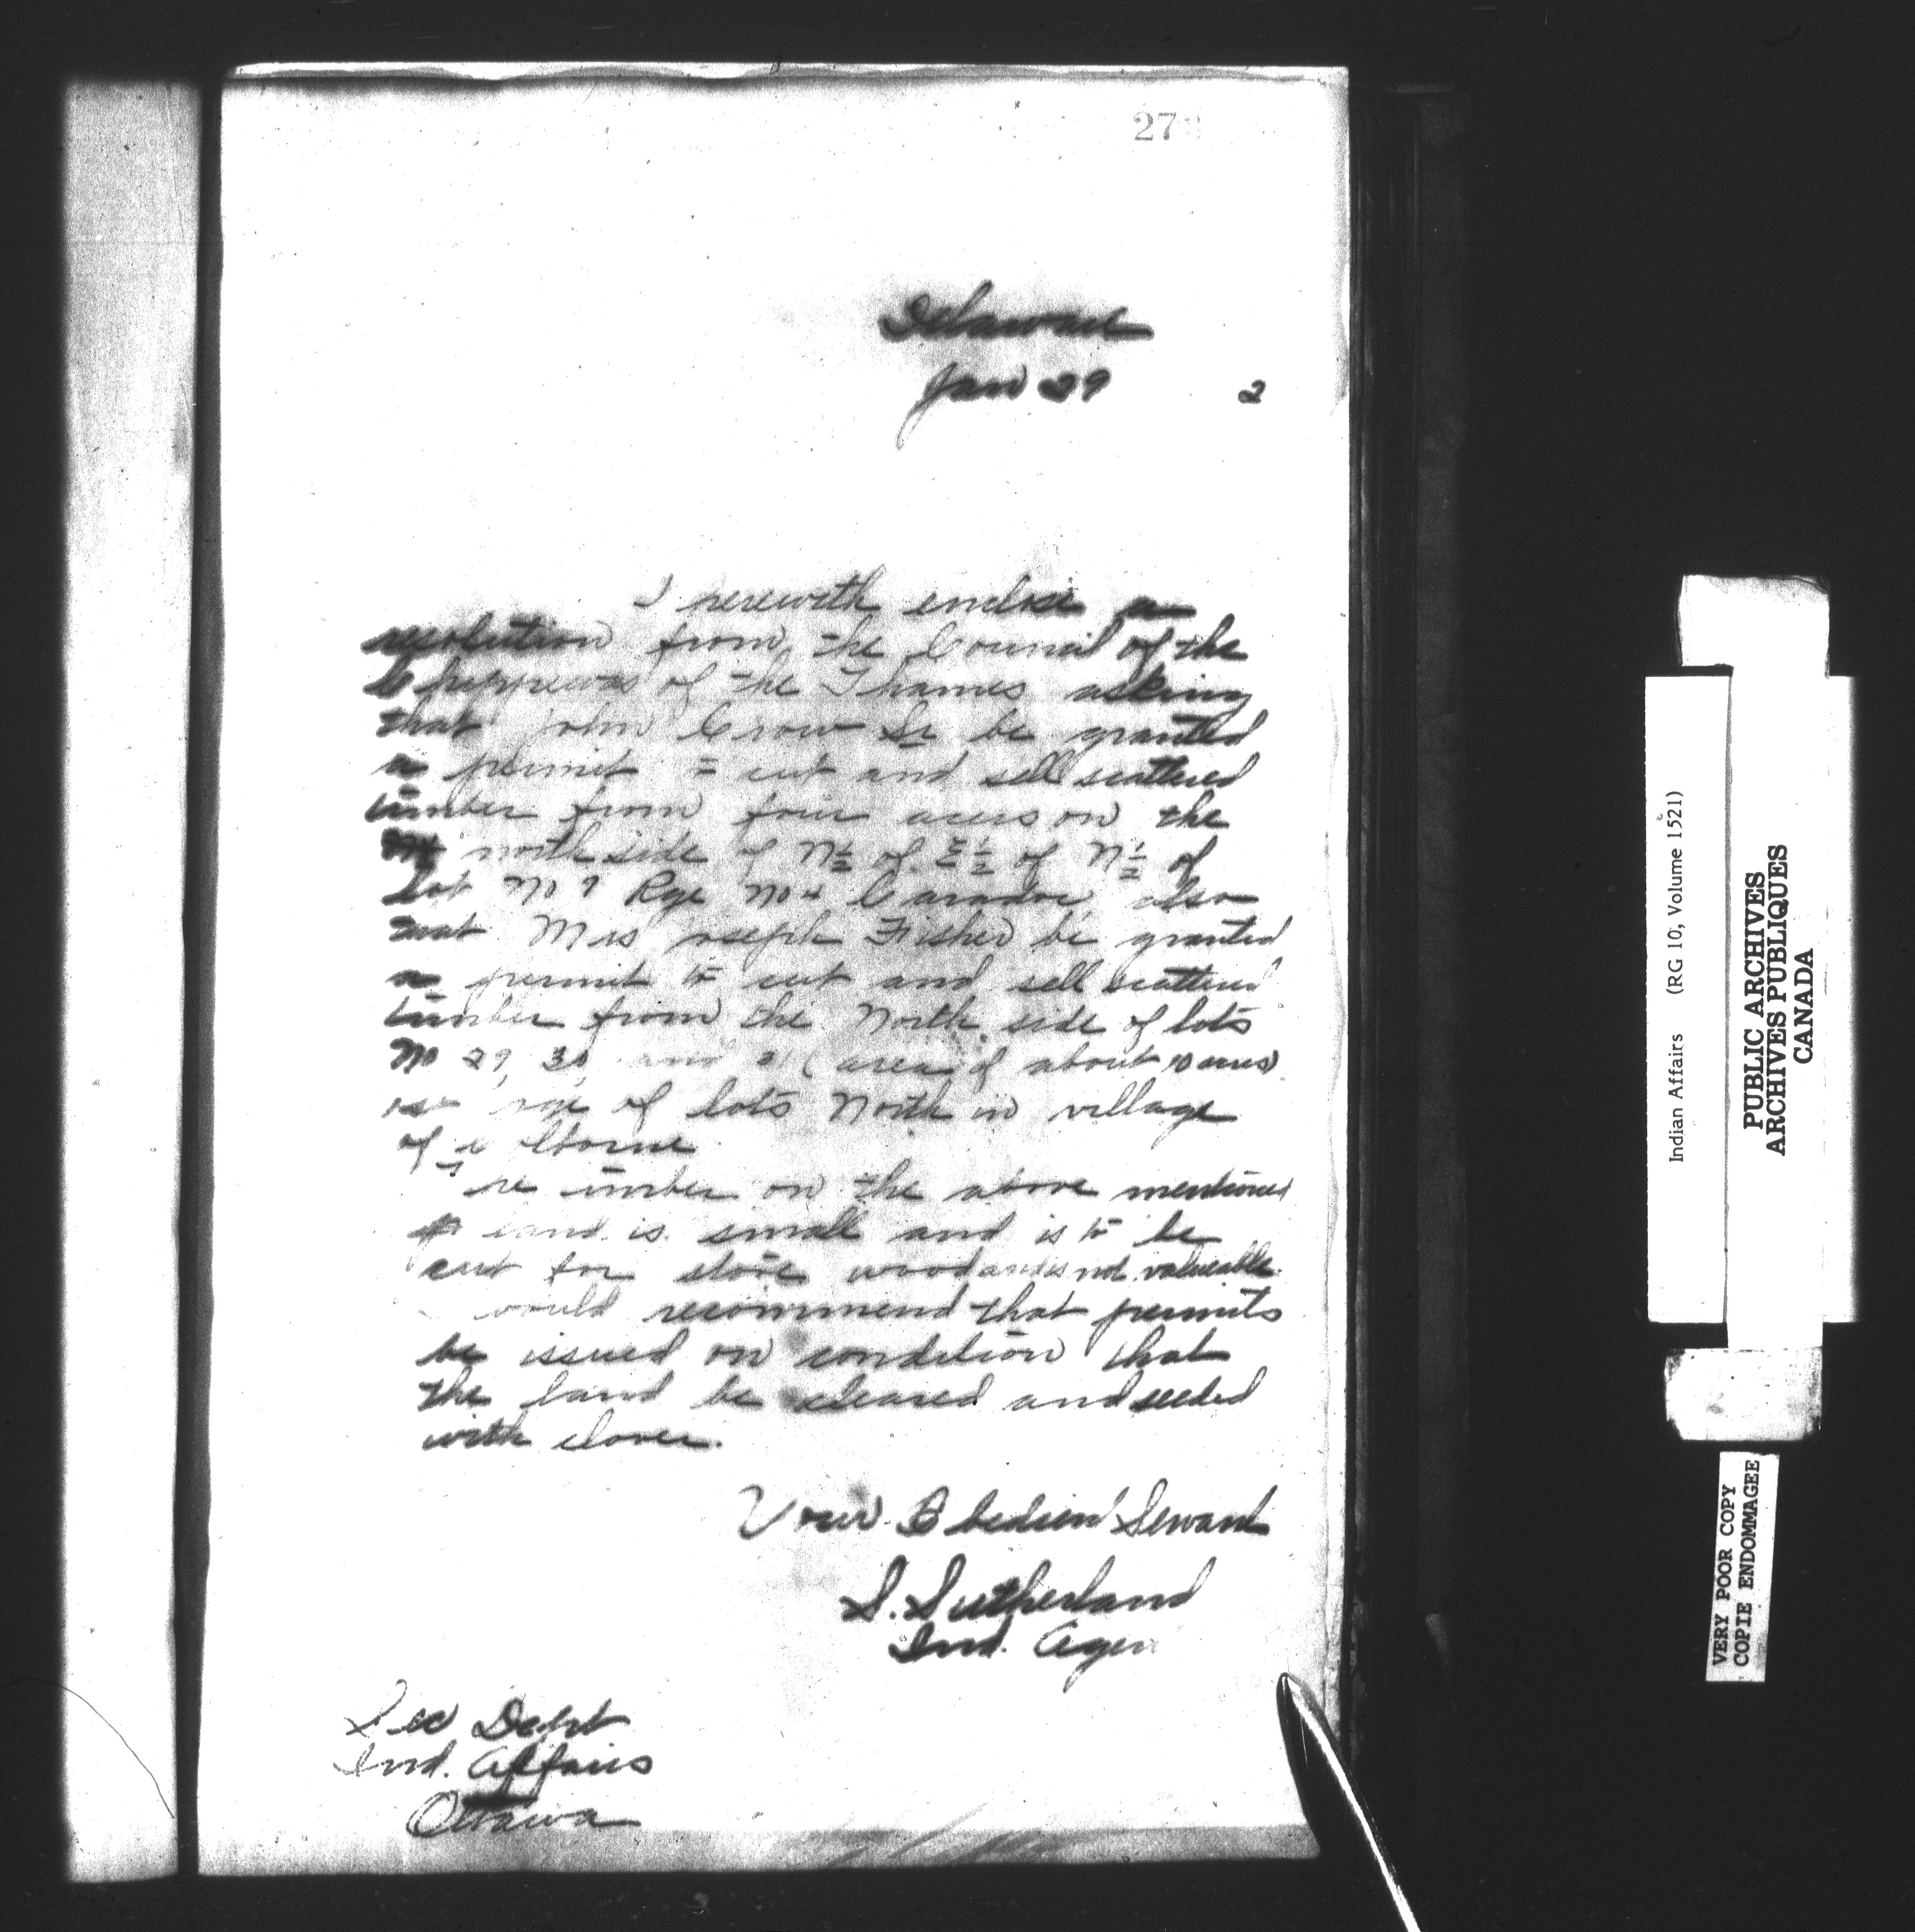 27
Delaware
Jan 29 2
I herewith enclose a
resolution from the Council of the
Chippewas of the Thames asking
that John Crow Sr be granted
a permit to cut and sell scattered
timber from four acres on the
north side of N½ of E½ of N½ of
Lot No 9 Rge No 4 Caradoc also
that Mrs Joseph Fisher be granted
a permit to cut and sell scattered
timber from the North side of lots
No 29, 30 and (area of about 10 acres)
of lots North in village
of
timber on the above mentioned
land is small and is to be
cut for stove wood and is not valueable
would recommend that permits
be issued on condition that
the land be cleared and seeded
with clover.
Your Obedient Servant
S. Sutherland
Ind. Agent
Sec Dept
Ind. Affairs
Ottawa
Indian Affairs (RG 10, Volume 1521)
PUBLIC ARCHIVES
ARCHIVES PUBLIQUES
CANADA
VERY POOR COPY
COPIE ENDOMMAGEE